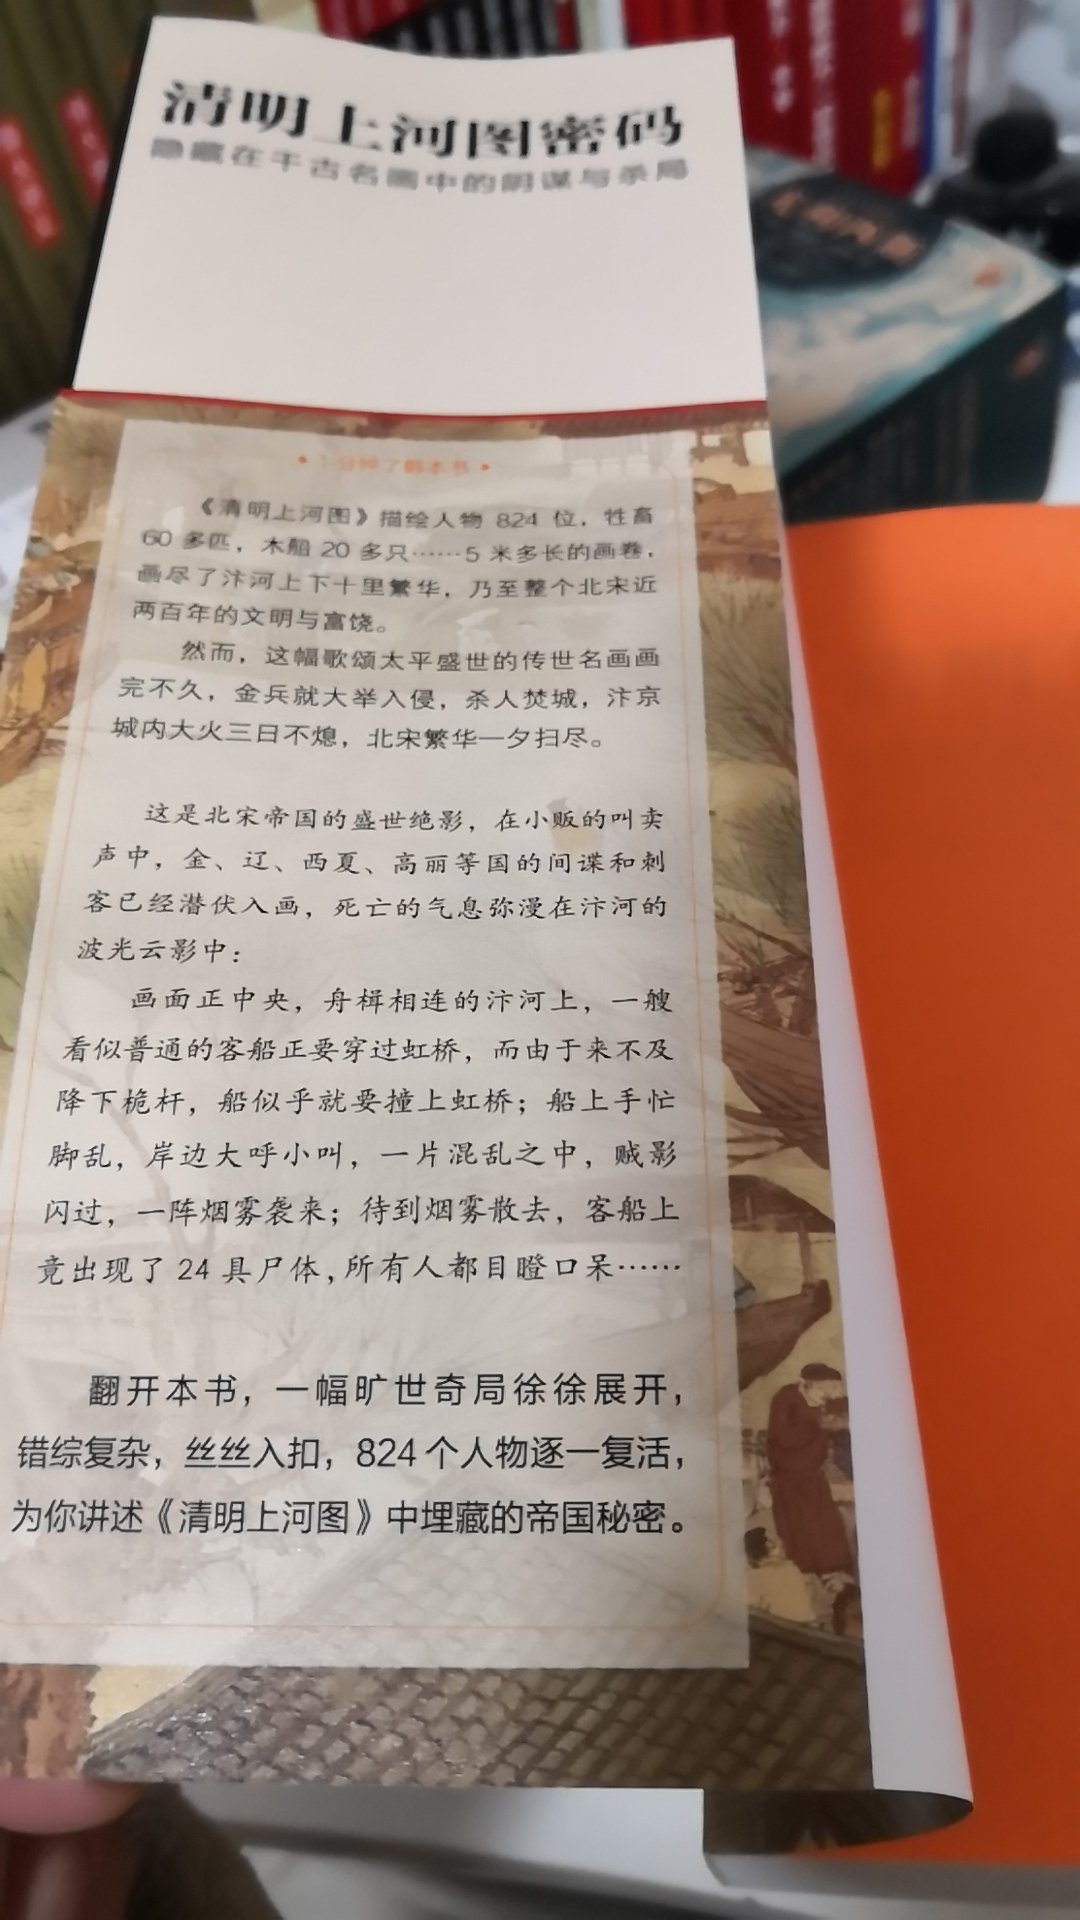 清明上河图密码
隐藏在千古名画中的阴谋与杀局
• 1分钟了解本书 •
《清明上河图》描绘人物 824 位，牲畜
60 多匹，木船 20 多只……5 米多长的画卷，
画尽了汴河上下十里繁华，乃至整个北宋近
两百年的文明与富饶。
然而，这幅歌颂太平盛世的传世名画画
完不久，金兵就大举入侵，杀人焚城，汴京
城内大火三日不熄，北宋繁华一夕扫尽。
这是北宋帝国的盛世绝影，在小贩的叫卖
声中，金、辽、西夏、高丽等国的间谍和刺
客已经潜伏入画，死亡的气息弥漫在汴河的
波光云影中：
画面正中央，舟楫相连的汴河上，一艘
看似普通的客船正要穿过虹桥，而由于来不及
降下桅杆，船似乎就要撞上虹桥；船上手忙
脚乱，岸边大呼小叫，一片混乱之中，贼影
闪过，一阵烟雾袭来；待到烟雾散去，客船上
竟出现了 24 具尸体，所有人都目瞪口呆……
翻开本书，一幅旷世奇局徐徐展开，
错综复杂，丝丝入扣，824 个人物逐一复活，
为你讲述《清明上河图》中埋藏的帝国秘密。